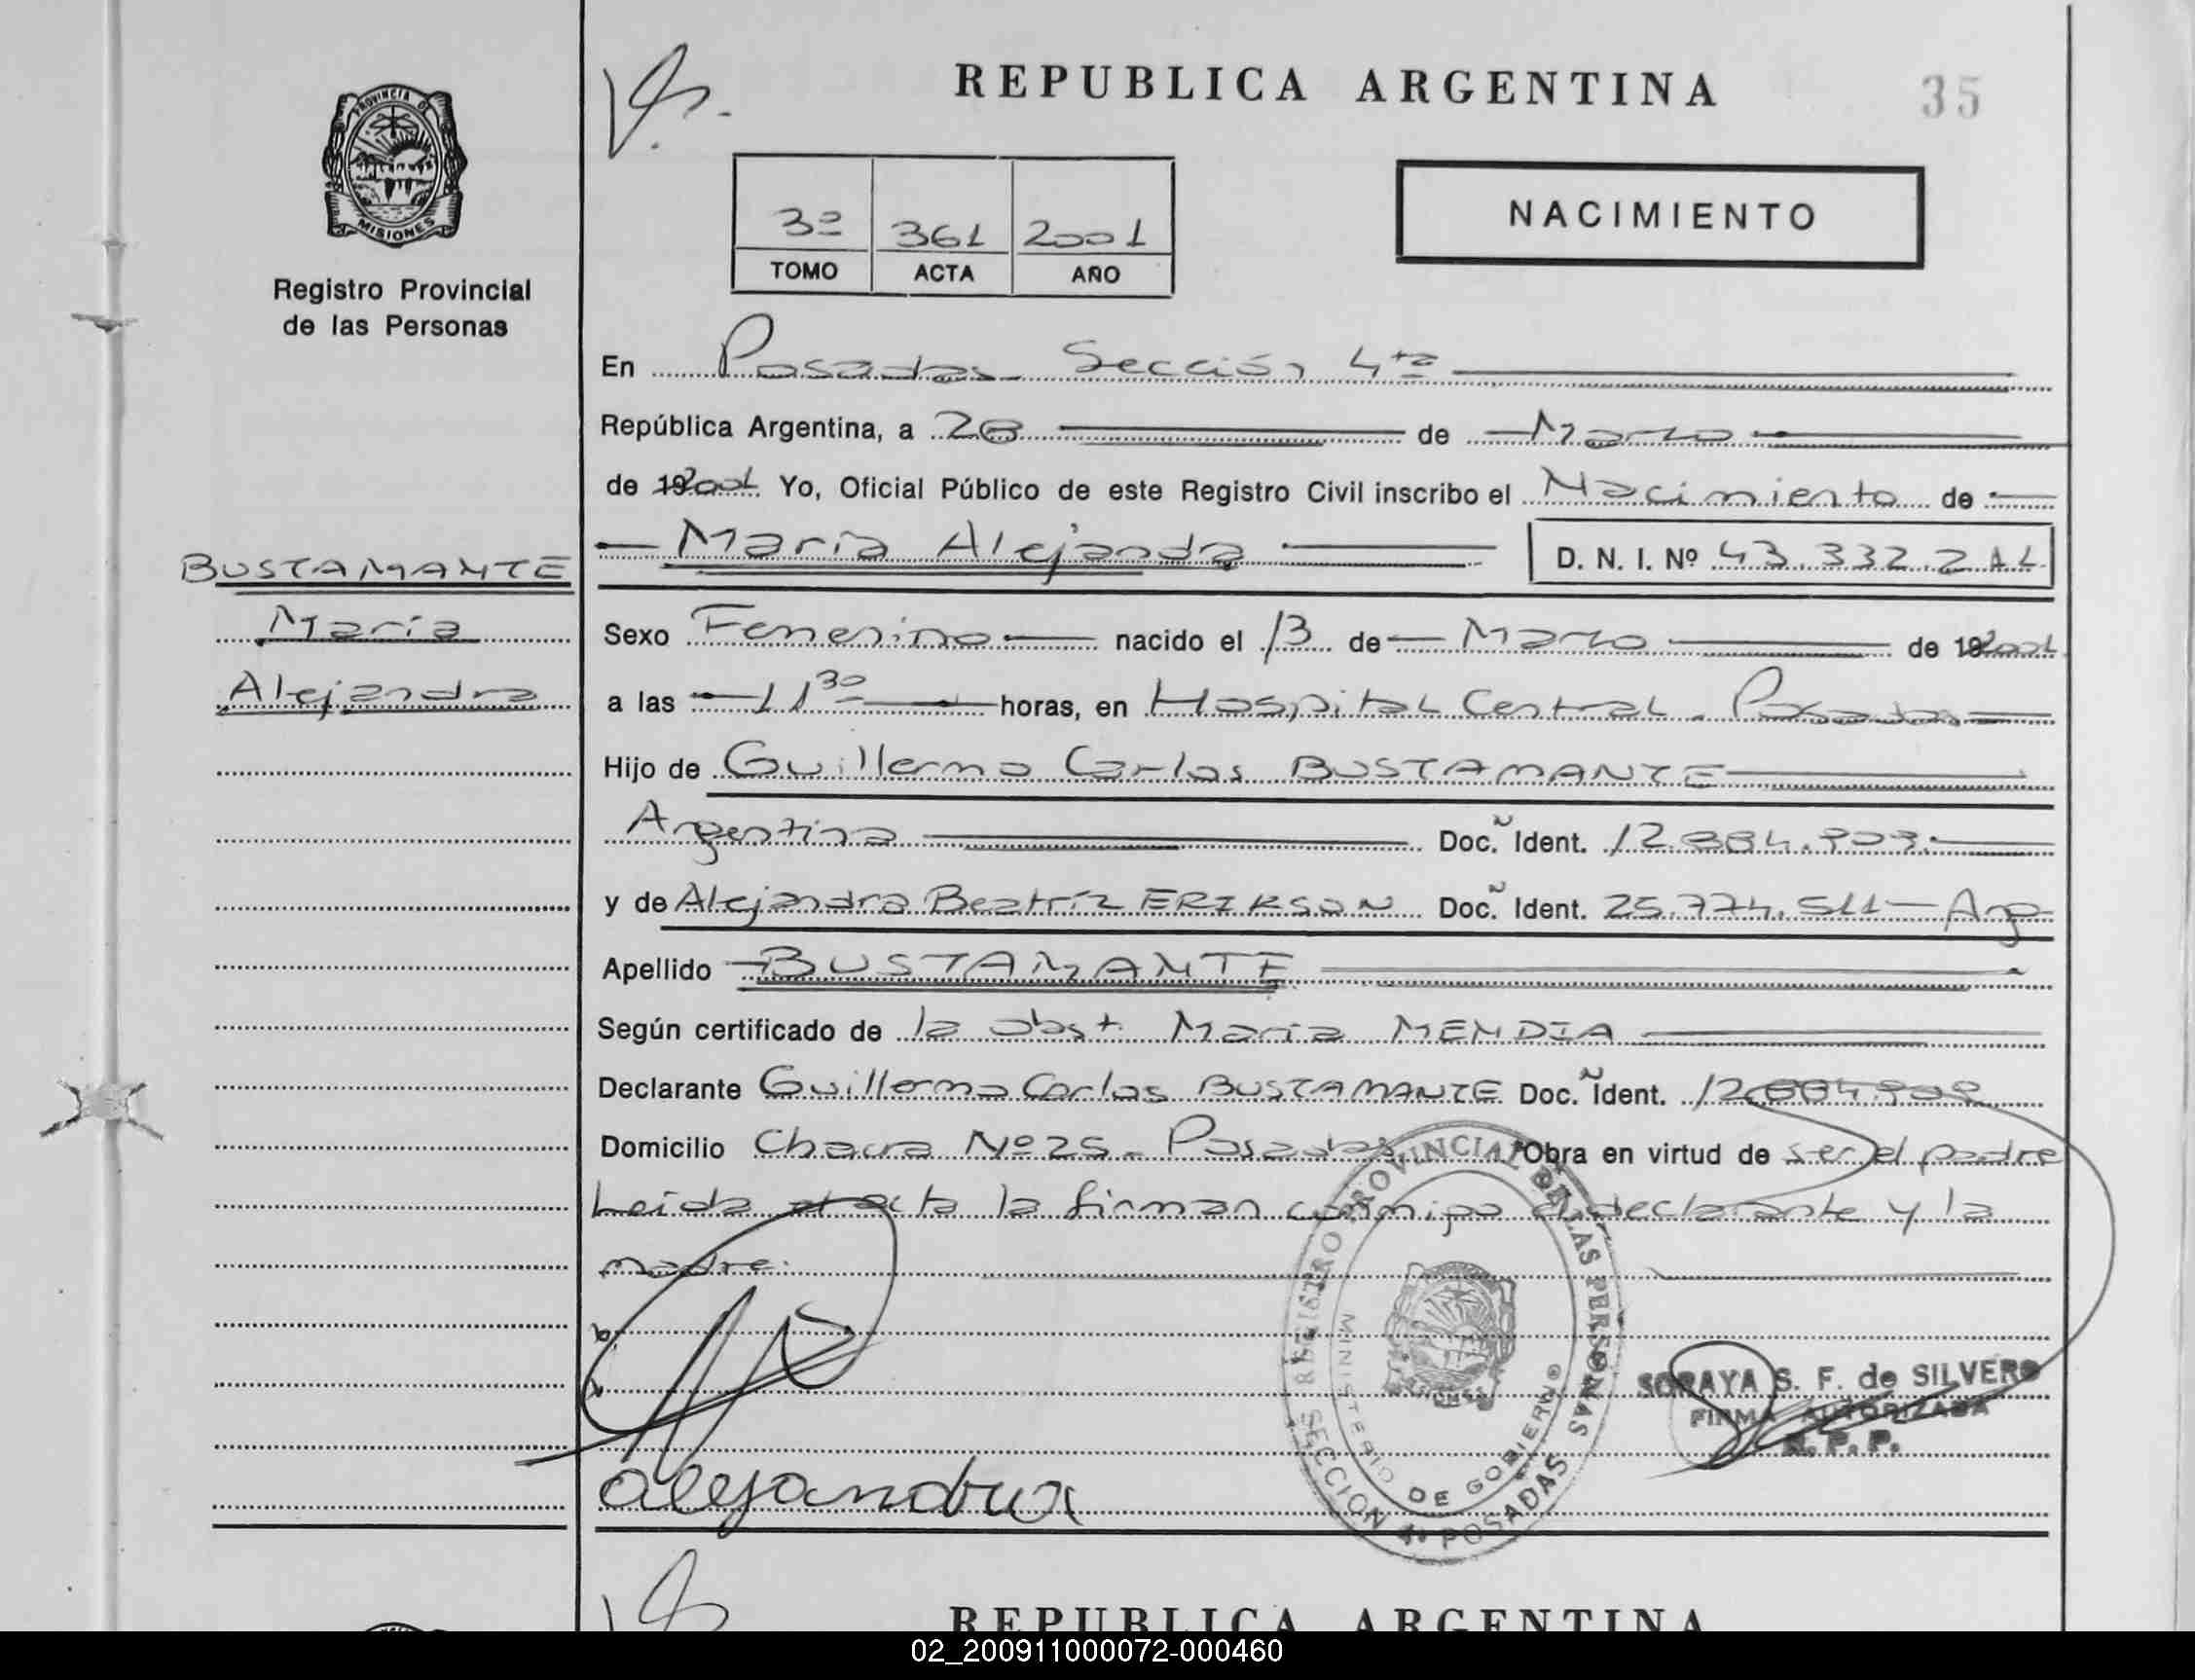 REPUBLICA ARGENTINA
35
PROVINCIA DE
MISIONES
Registro Provincial
de las Personas
3º 361 2001
TOMO ACTA AÑO
NACIMIENTO
En Posadas Sección 4ta
República Argentina, a 28 de Marzo
de 192001 Yo, Oficial Público de este Registro Civil inscribo el Nacimiento de
María Alejandra D. N. I. Nº 43.332.211
BUSTAMANTE
María
Alejandra
Sexo Femenino nacido el 13 de Marzo de 192001
a las 11 30 horas, en Hospital Central - Posadas
Hijo de Guillermo Carlos BUSTAMANTE
Argentina Doc. Ident. 12.884.909
y de Alejandra Beatríz ERIKSON Doc. Ident. 25.774.511 - Arg
Apellido BUSTAMANTE
Según certificado de la obst. María MENDIA
Declarante Guillermo Carlos BUSTAMANTE Doc. Ident. 12.884.909
Domicilio Chacra Nº 25 - Posadas Obra en virtud de ser el padre
Leída el acta la firman conmigo el declarante y la
madre.
REGISTRO PROVINCIAL DE LAS PERSONAS
MINISTERIO DE GOBIERNO
SECCION 4ª POSADAS
SORAYA S. F. de SILVERO
FIRMA AUTORIZADA
R. P. P.
alejandra
REPUBLICA ARGENTINA
02_200911000072-000460